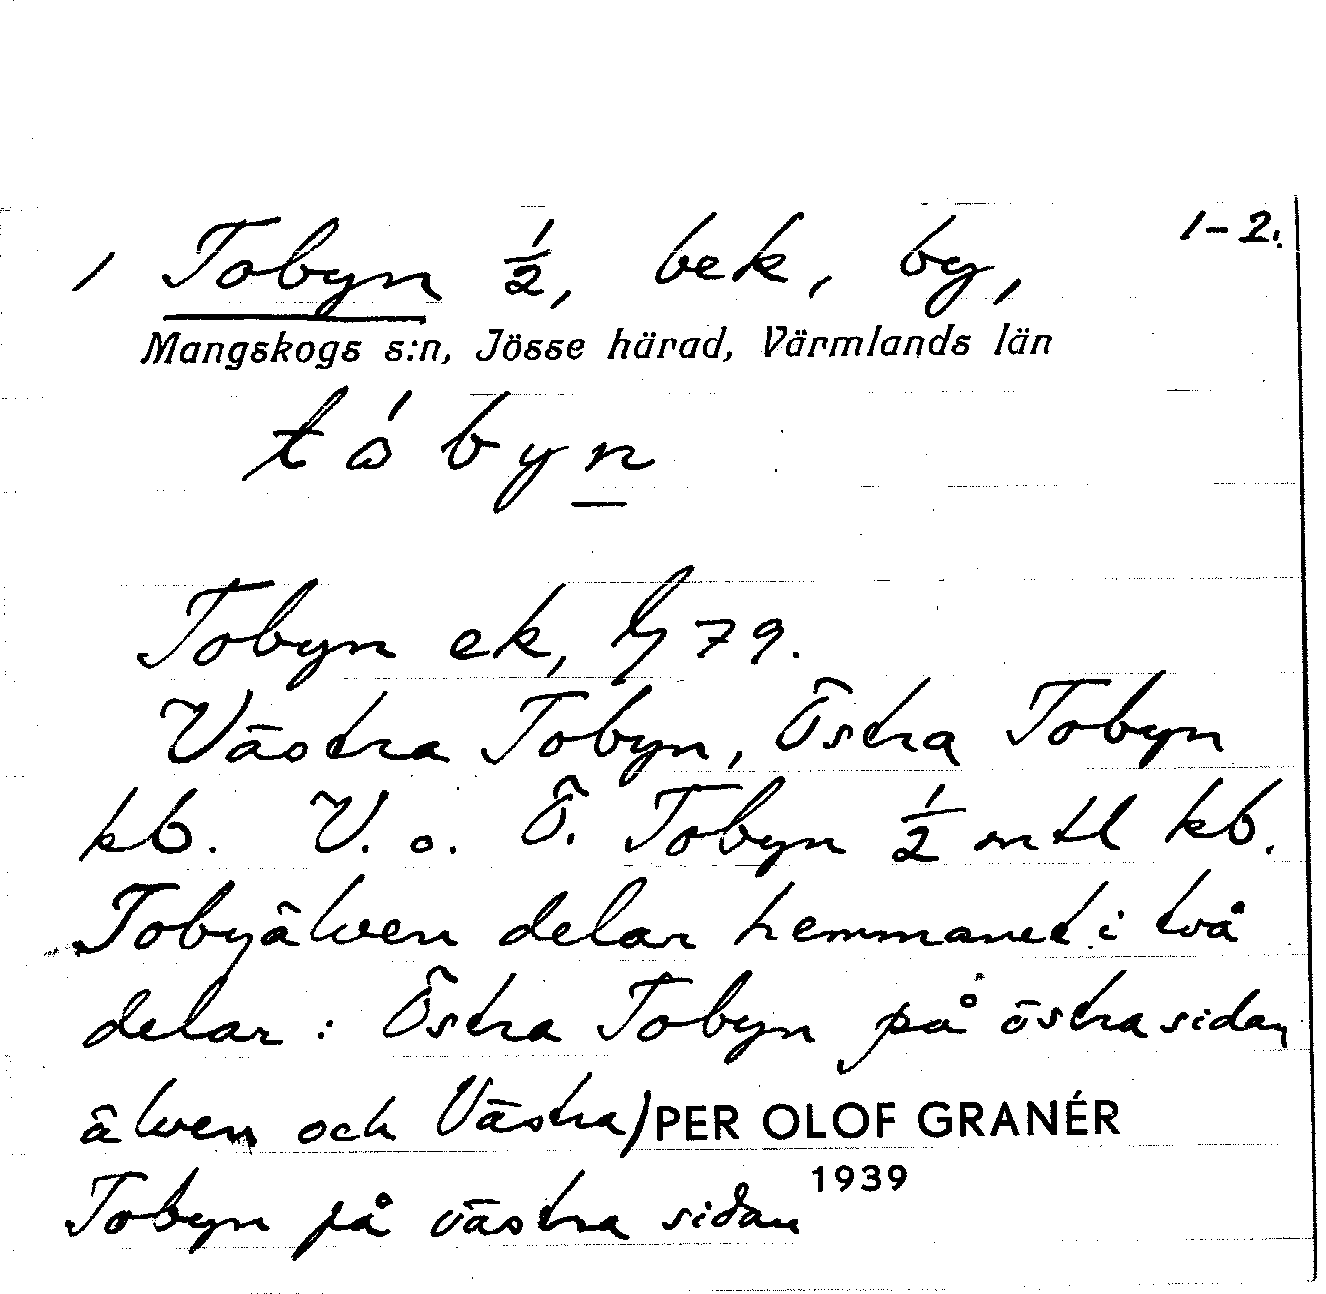 1-2.
1 Tobyn ½, bek, by,
Mangskogs s:n, Jösse härad, Värmlands län
tóbyn
Tobyn ek, 79.
Västra Tobyn, Östra Tobyn
kb. V. o. Ö. Tobyn ½ mtl kb.
Tobyälven delar hemmanet i två
delar: Östra Tobyn på östra sidan
älven och Västra) PER OLOF GRANÉR
1939
Tobyn på västra sidan